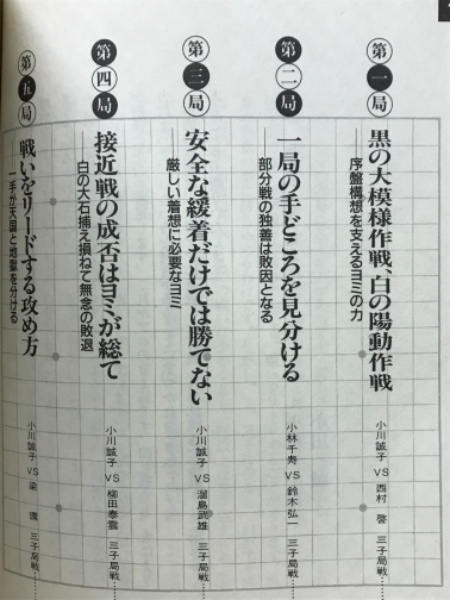 第一局
黒の大模様作戦、白の陽動作戦
――序盤構想を支えるヨミの力
小川誠子 VS 西村 啓 三子局戦……
第二局
一局の手どころを見分ける
――部分戦の独善は敗因となる
小林千寿 VS 鈴木弘一 三子局戦……
第三局
安全な緩着だけでは勝てない
――厳しい着想に必要なヨミ
小川誠子 VS 溜島武雄 三子局戦……
第四局
接近戦の成否はヨミが総て
――白の大石捕え損ねて無念の敗退
小川誠子 VS 柳田泰雲 三子局戦……
第五局
戦いをリードする攻め方
――一手が天国と地獄を分ける
小川誠子 VS 梁 三子局戦……